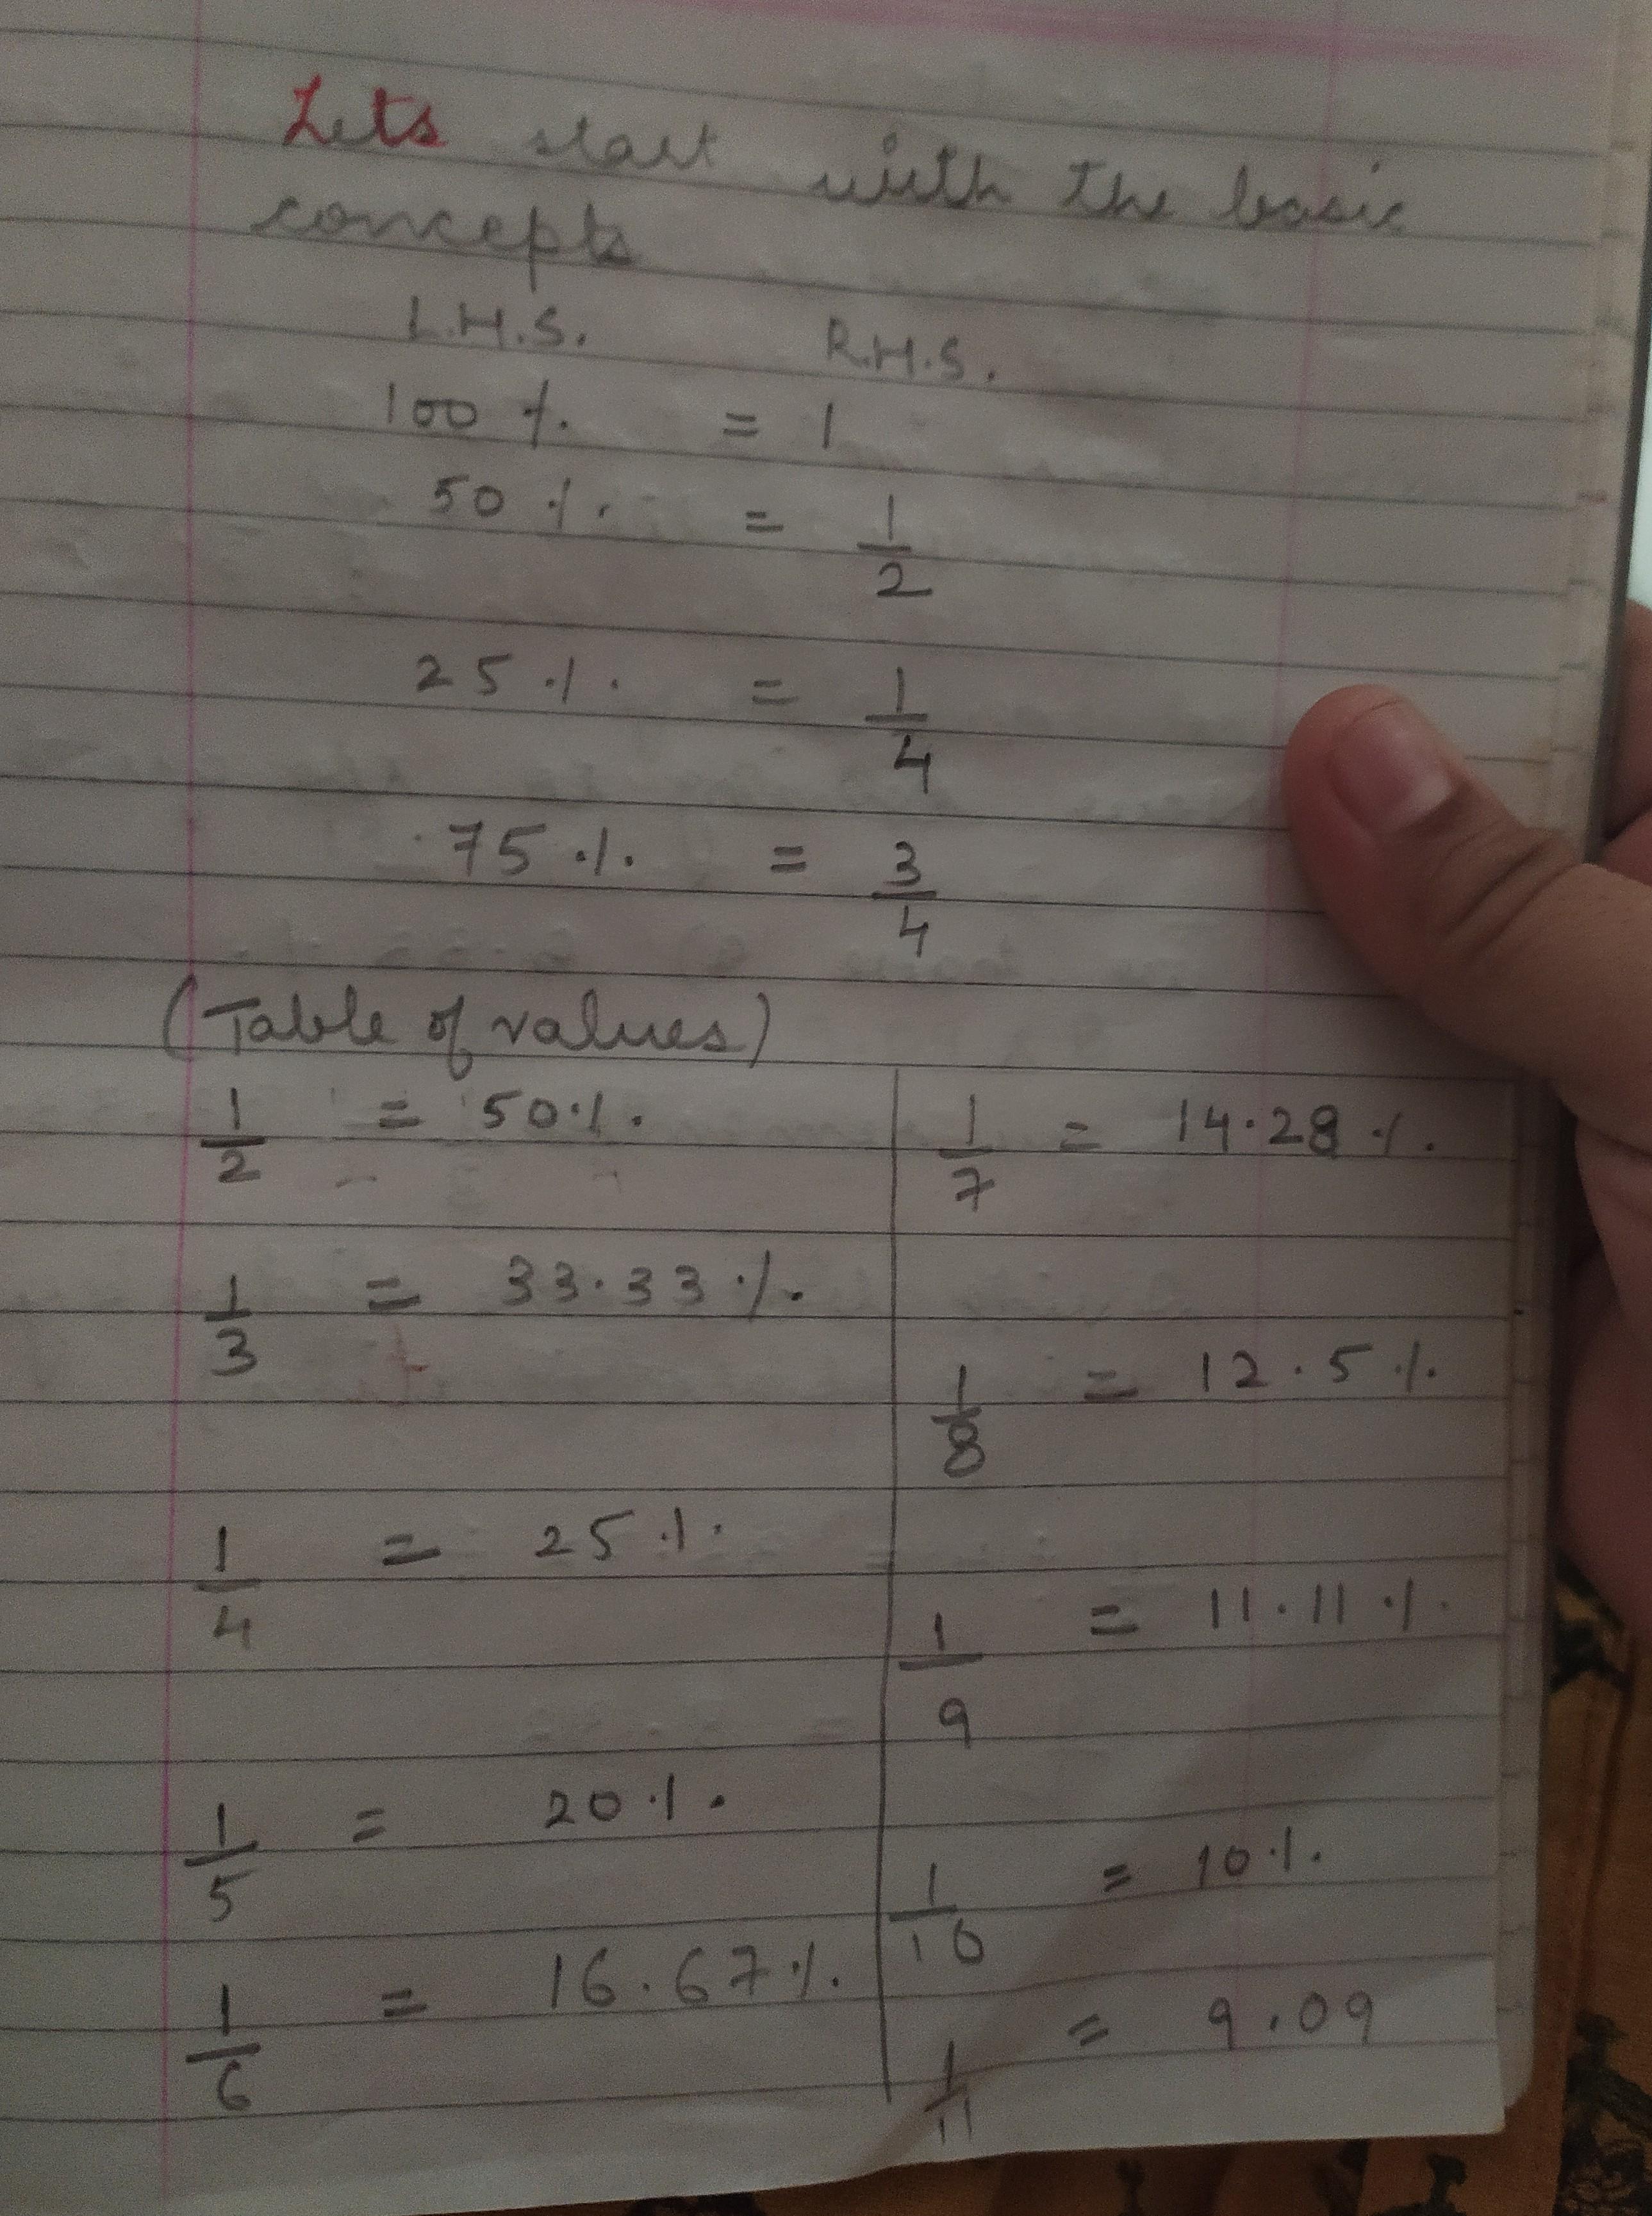 Lets start with the basic
concepts
L.H.S. R.H.S.
100 % = 1
50 % = 1/2
25 % = 1/4
75 % = 3/4
(Table of values)
1/2 = 50 %
1/3 = 33.33 %
1/4 = 25 %
1/5 = 20 %
1/6 = 16.67 %
1/7 = 14.28 %
1/8 = 12.5 %
1/9 = 11.11 %
1/10 = 10 %
1/11 = 9.09